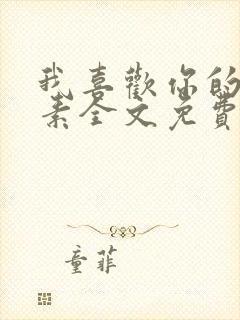 我喜歡你的
素全文免費
童菲